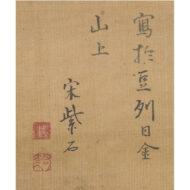 寫於豆列日金
山上
宋紫石